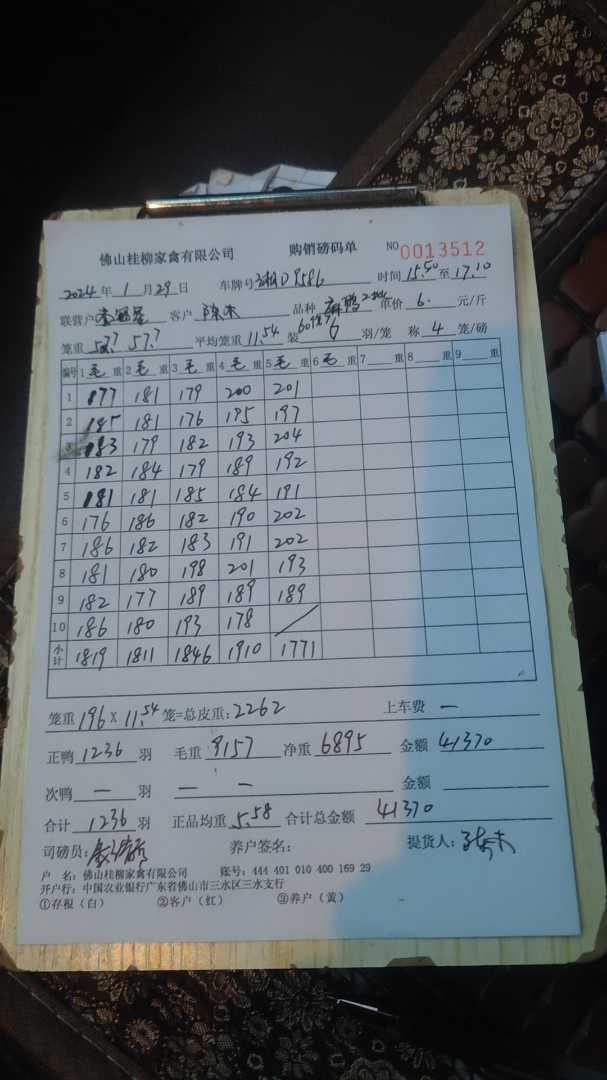 佛山桂柳家禽有限公司 购销磅码单 NO 0013512
2024 年 1 月 29 日 车牌号 D8586 时间 15.50 至 17.10
联营户 客户 品种 麻鸭 单价 6. 元/斤
笼重 57.7 57.7 平均笼重 11.54 装 6 羽/笼 称 4 笼/磅
编号 1 毛 重 2 毛 重 3 毛 重 4 毛 重 5 毛 重 6 毛 重 7 重 8 重 9 重
1 177 181 179 200 201
2 181 176 195 197
3 183 179 182 193 204
4 182 184 179 189 192
5 181 181 185 184 191
6 176 186 182 190 202
7 186 182 183 191 202
8 181 180 198 201 193
9 182 177 189 189 189
10 186 180 193 178
小计 1819 1811 1846 1910 1771
笼重 196 X 11.54 笼=总皮重: 2262 上车费 —
正鸭 1236 羽 毛重 9157 净重 6895 金额 41370
次鸭 — 羽 — — 金额
合计 1236 羽 正品均重 5.58 合计总金额 41370
司磅员: 养户签名: 提货人:
户 名: 佛山桂柳家禽有限公司 账号: 444 401 010 400 169 29
开户行: 中国农业银行广东省佛山市三水区三水支行
①存根（白） ②客户（红） ③养户（黄）